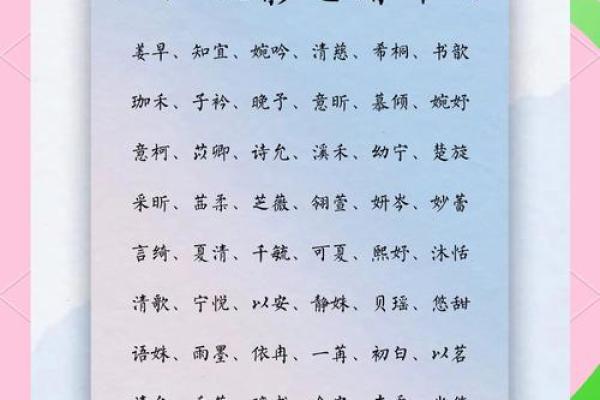 姜早、知宜、婉吟、清慈、希桐、书歆
珈禾、子衿、晚予、意昕、慕倾、婉妤
意柯、苡卿、诗允、溪禾、幼宁、楚旋
采昕、茁柔、芝薇、翎萱、妍岑、妙蕾
言绮、夏清、千毓、可夏、熙妤、沐恬
清歌、宁悦、以安、静姝、贝瑶、悠甜
语姝、雨墨、依冉、一苒、初白、以茗